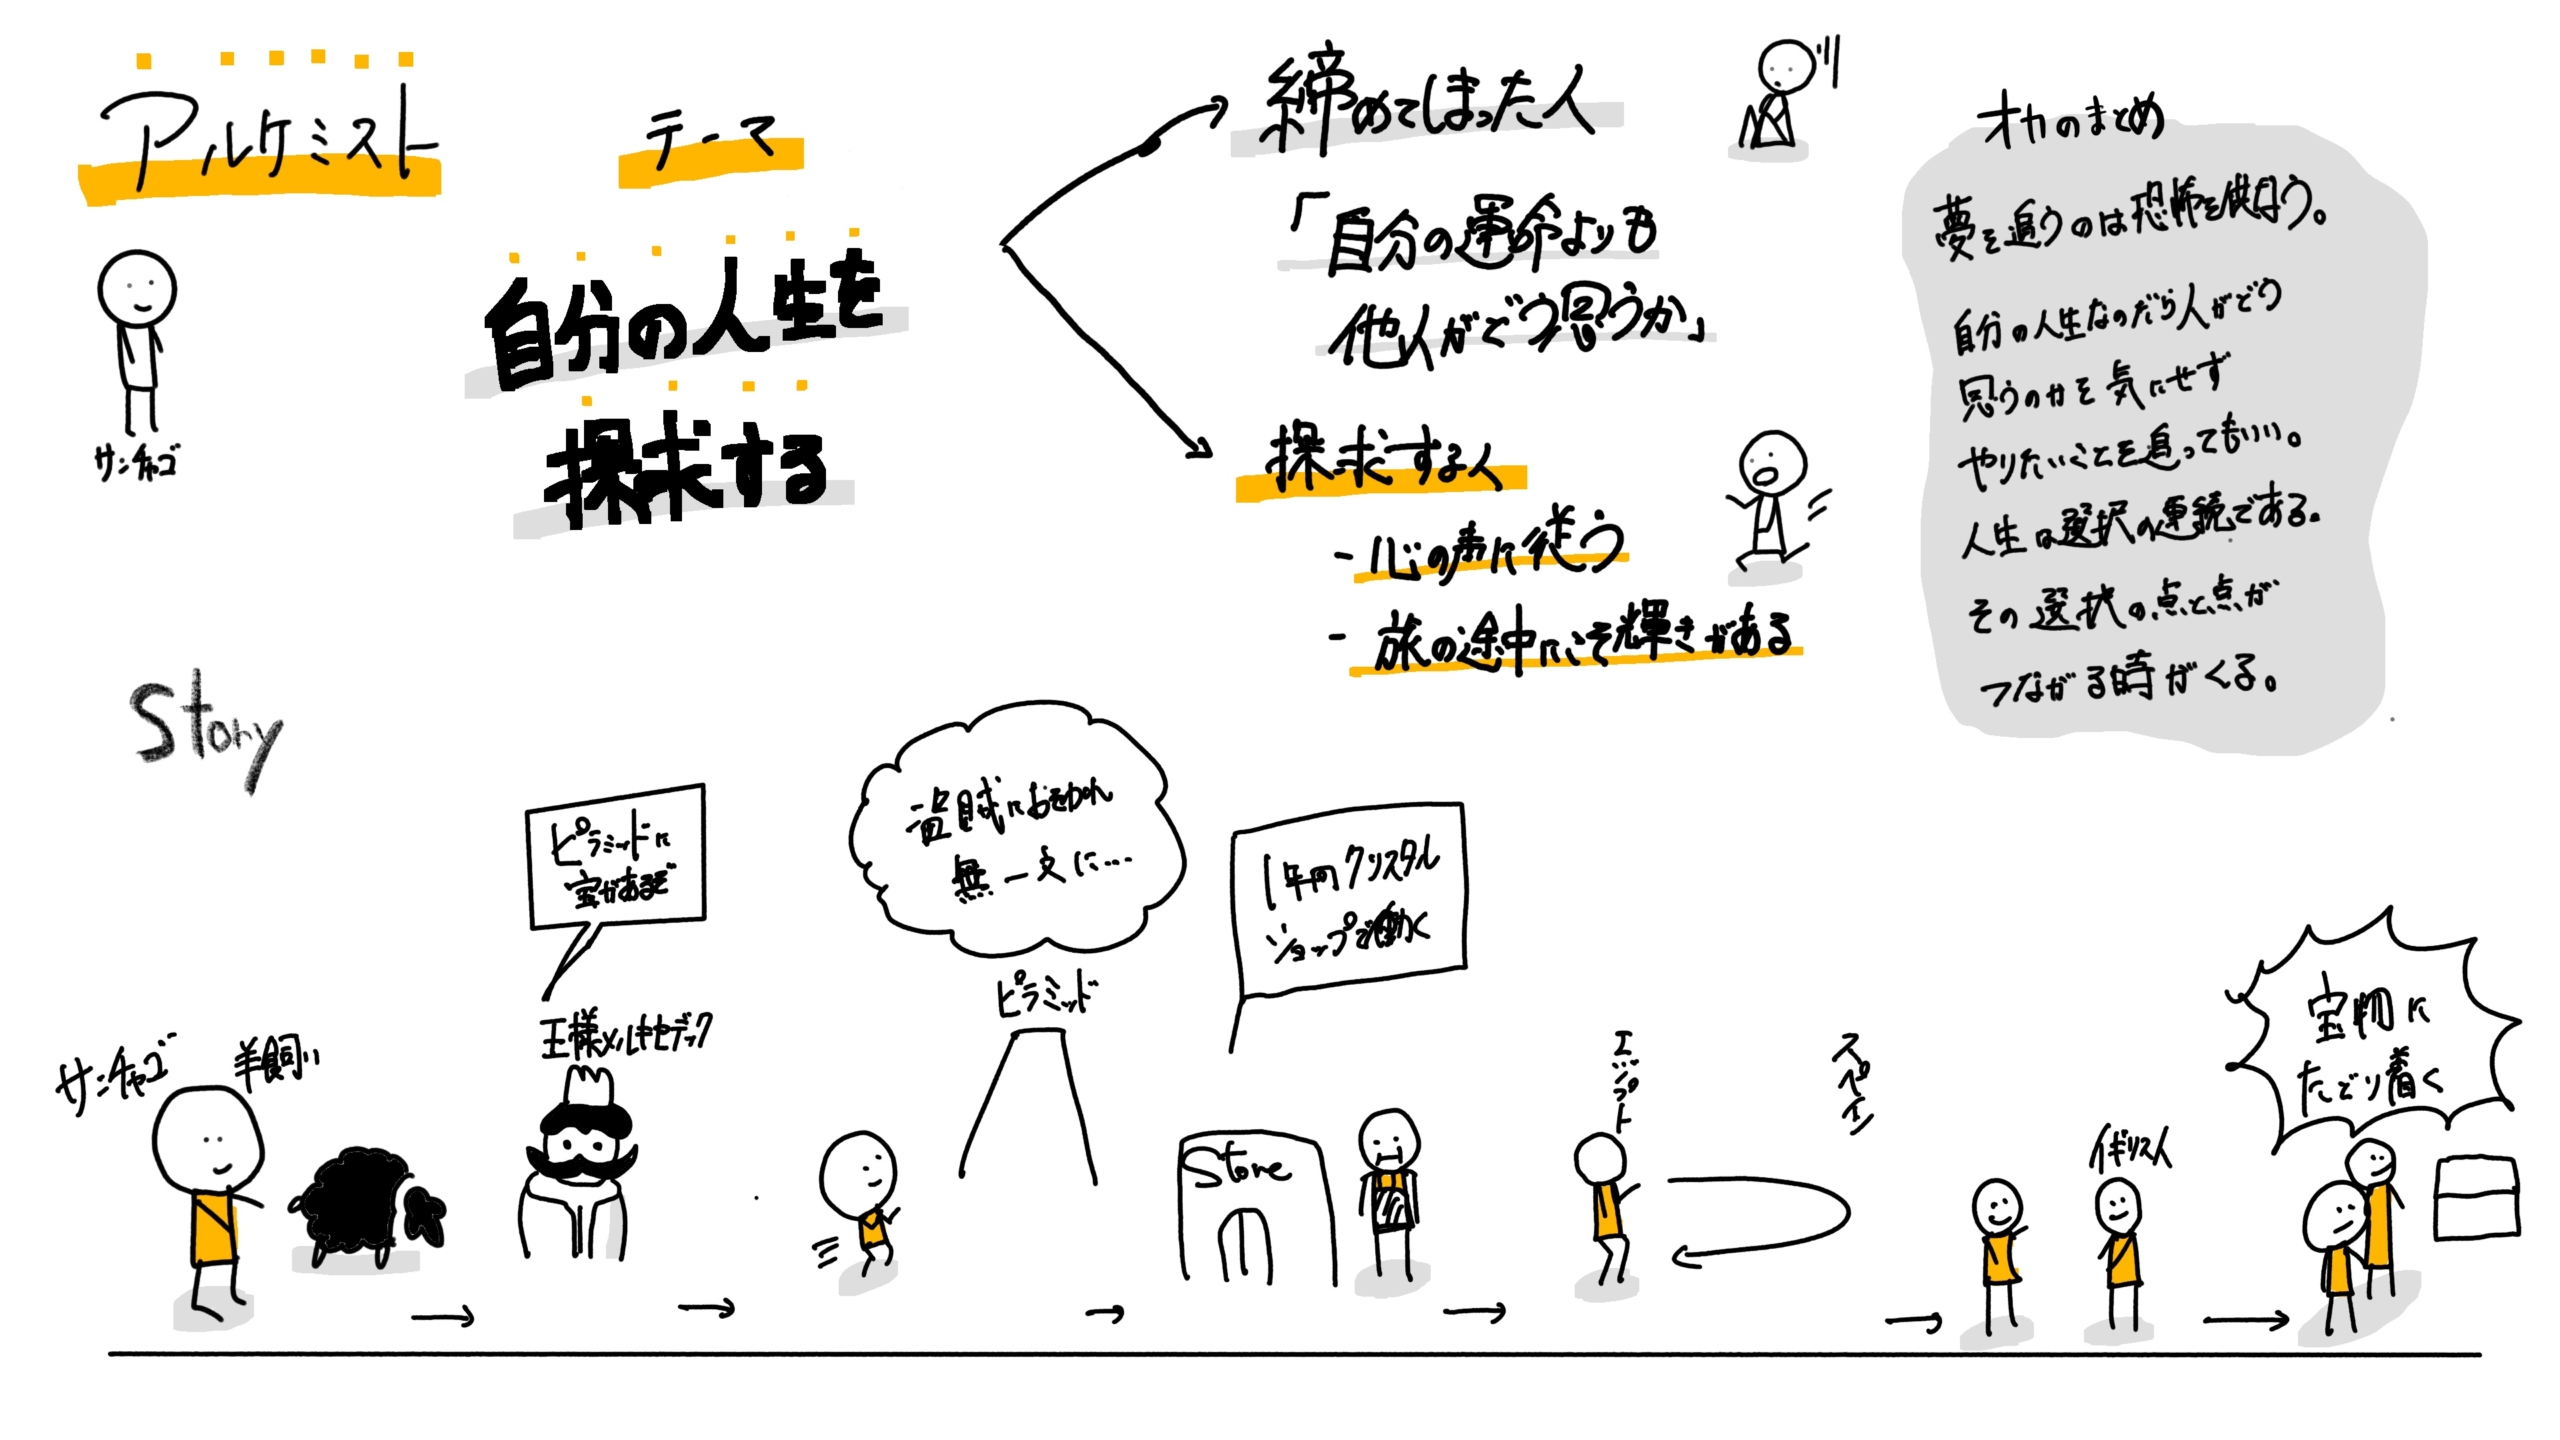 アルケミスト
サンチャゴ
テーマ
自分の人生を
探求する
締めてしまった人
「自分の運命よりも
他人がどう思うか」
探求する人
- 心の声に従う
- 旅の途中にこそ輝きがある
オカのまとめ
夢を追うのは恐怖を供なう。
自分の人生なのだら人がどう
思うのかを気にせず
やりたいことを追ってもいい。
人生は選択の連続である。
その選択の点と点が
つながる時がくる。
Story
サンチャゴ
羊飼い
ピラミッドに
宝があるぞ
王様メルキセデック
盗賊におそわれ
無一文に…
ピラミッド
1年間クリスタル
ショップで働く
Store
エジプト
スペイン
イギリス人
宝物に
たどり着く